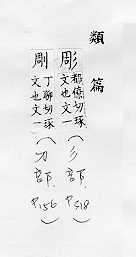 類篇
彫
都僚切琢
文也文一
（彡部
P.318）
剛
丁聊切琢
文也文一
（刀部
P.156）